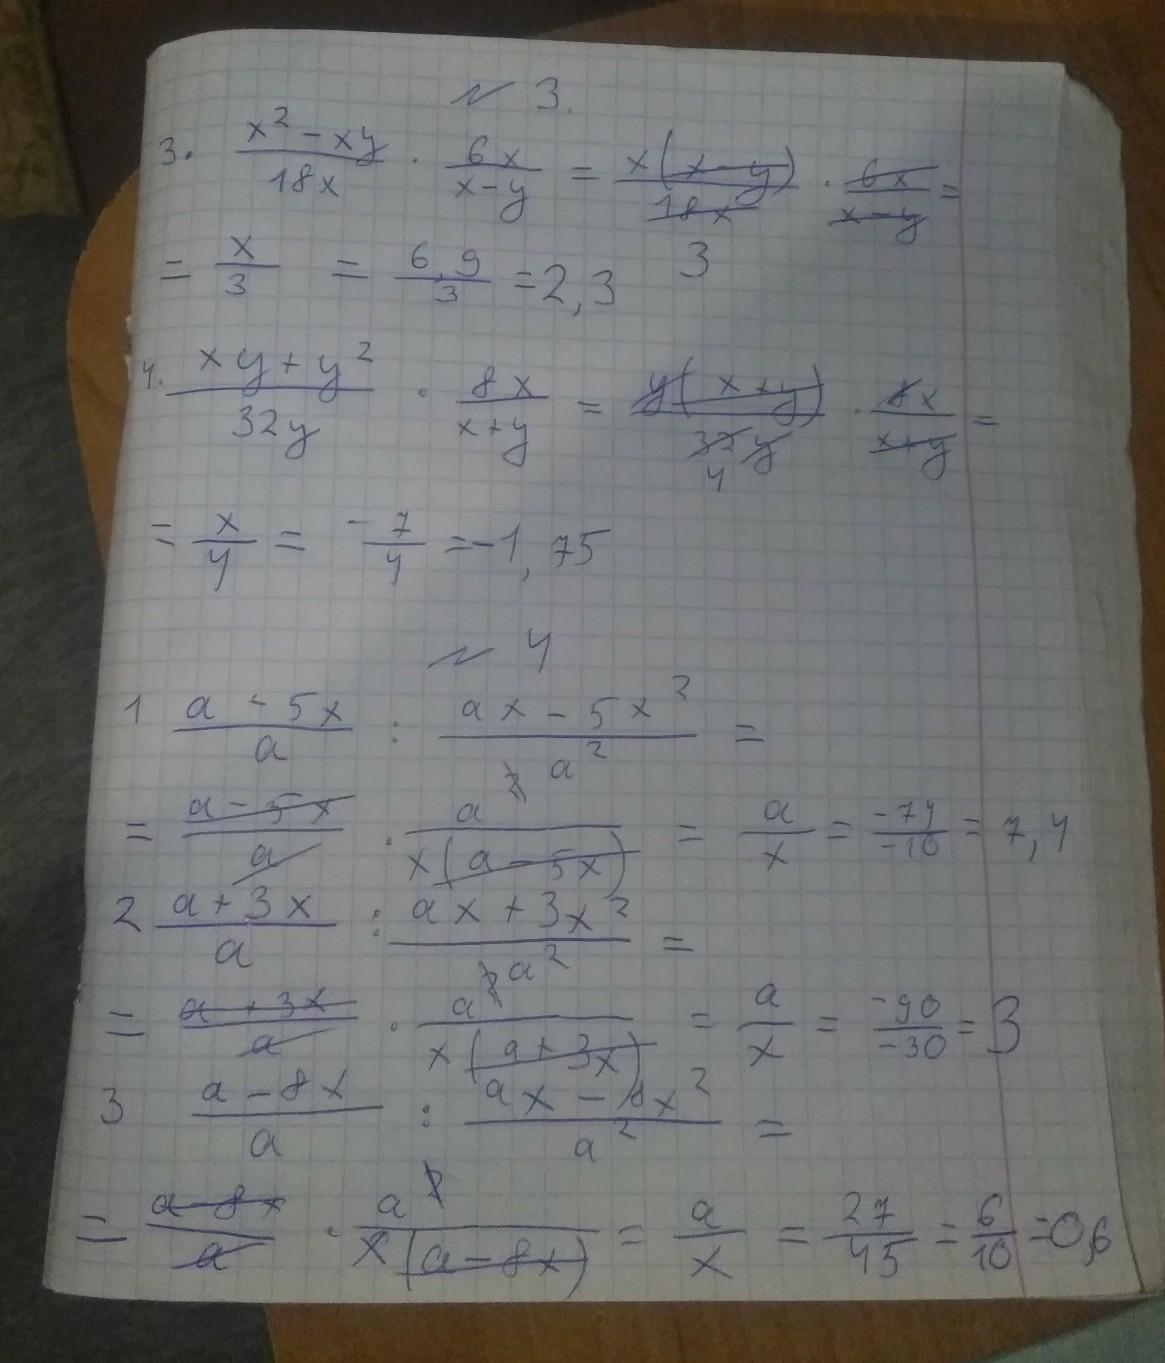 № 3.
3. (x² - xy)/(18x) · (6x)/(x-y) = (x(x-y))/(18x) · (6x)/(x-y) =
3
= x/3 = 6,9/3 = 2,3
4. (xy + y²)/(32y) · (8x)/(x+y) = (y(x+y))/(32y) · (8x)/(x+y) =
4
= x/4 = -7/4 = -1,75
№ 4
1 (a - 5x)/a : (ax - 5x²)/a² =
= (a - 5x)/a · a²/(x(a - 5x)) = a/x = -74/-10 = 7,4
2 (a + 3x)/a : (ax + 3x²)/a² =
= (a + 3x)/a · a²/(x(a + 3x)) = a/x = -90/-30 = 3
3 (a - 8x)/a : (ax - 8x²)/a² =
= (a - 8x)/a · a²/(x(a - 8x)) = a/x = 27/45 = 6/10 = 0,6